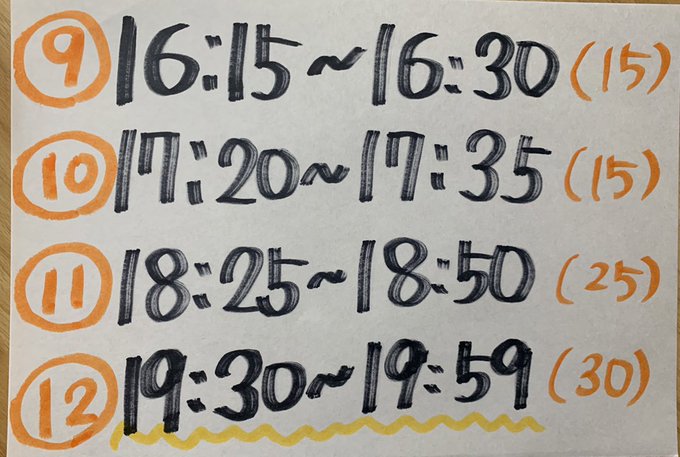 ⑨ 16:15~16:30 (15)
⑩ 17:20~17:35 (15)
⑪ 18:25~18:50 (25)
⑫ 19:30~19:59 (30)